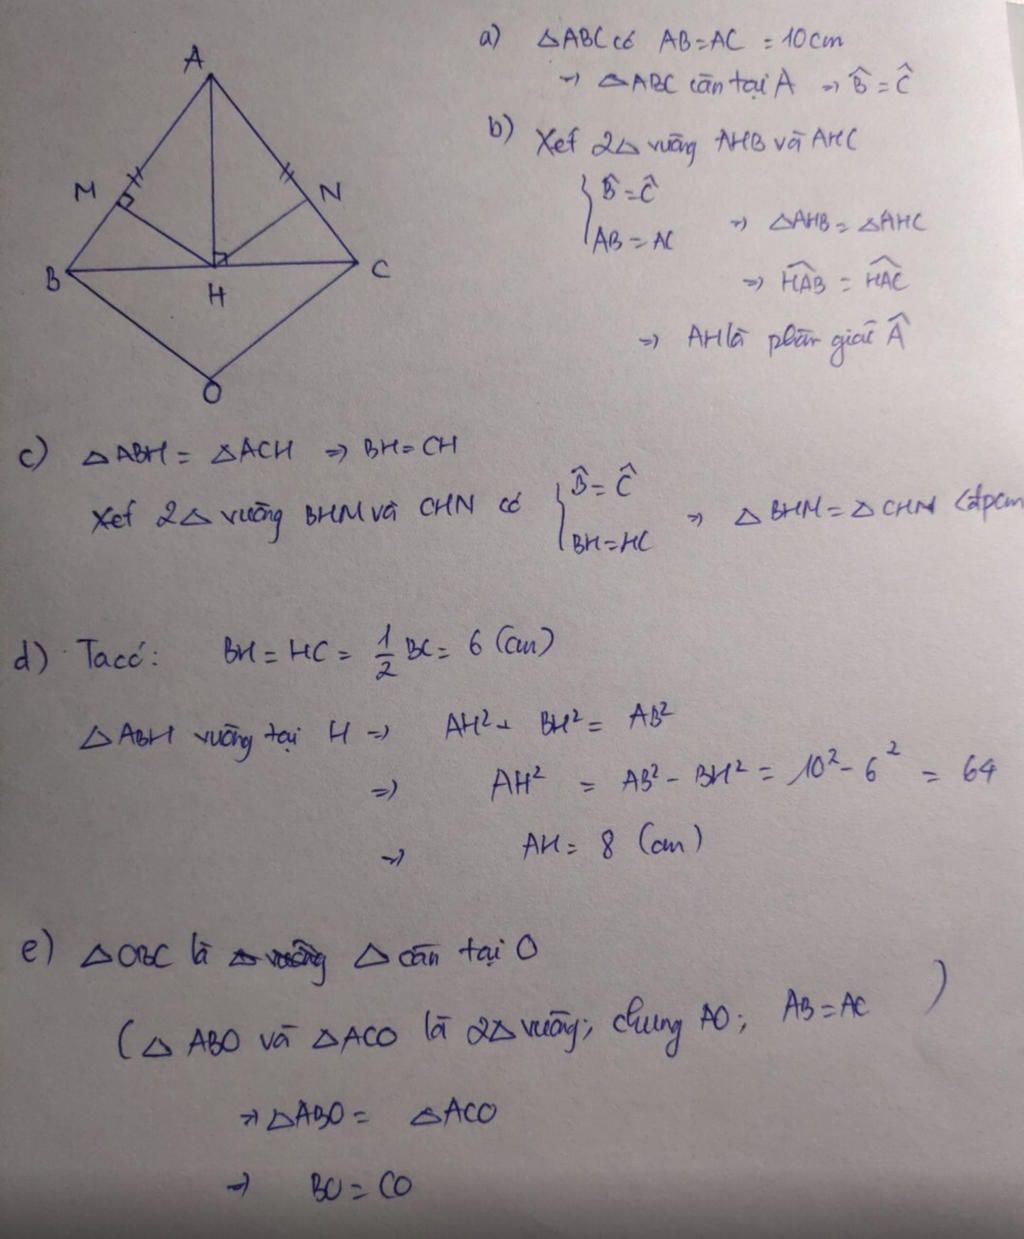 A
M
N
B
C
H
O
a) △ABC có AB=AC = 10cm
→ △ABC cân tại A → B̂ = Ĉ
b) Xét 2△ vuông AHB và AHC
B̂=Ĉ
AB = AC
=> △AHB = △AHC
=> HAB̂ = HAĈ
=> AH là phân giác Â
c) △ABH = △ACH => BH=CH
Xét 2△ vuông BHM và CHN có
B̂=Ĉ
BH=HC
=> △BHM=△CHN (đpcm
d) Ta có: BH = HC = 1/2 BC = 6 (cm)
△ABH vuông tại H => AH² + BH² = AB²
=> AH² = AB² - BH² = 10² - 6² = 64
=> AH = 8 (cm)
e) △OBC là △ cân tại O
(△ABO và △ACO là 2△ vuông; chung AO; AB=AC )
=> △ABO = △ACO
=> BO = CO